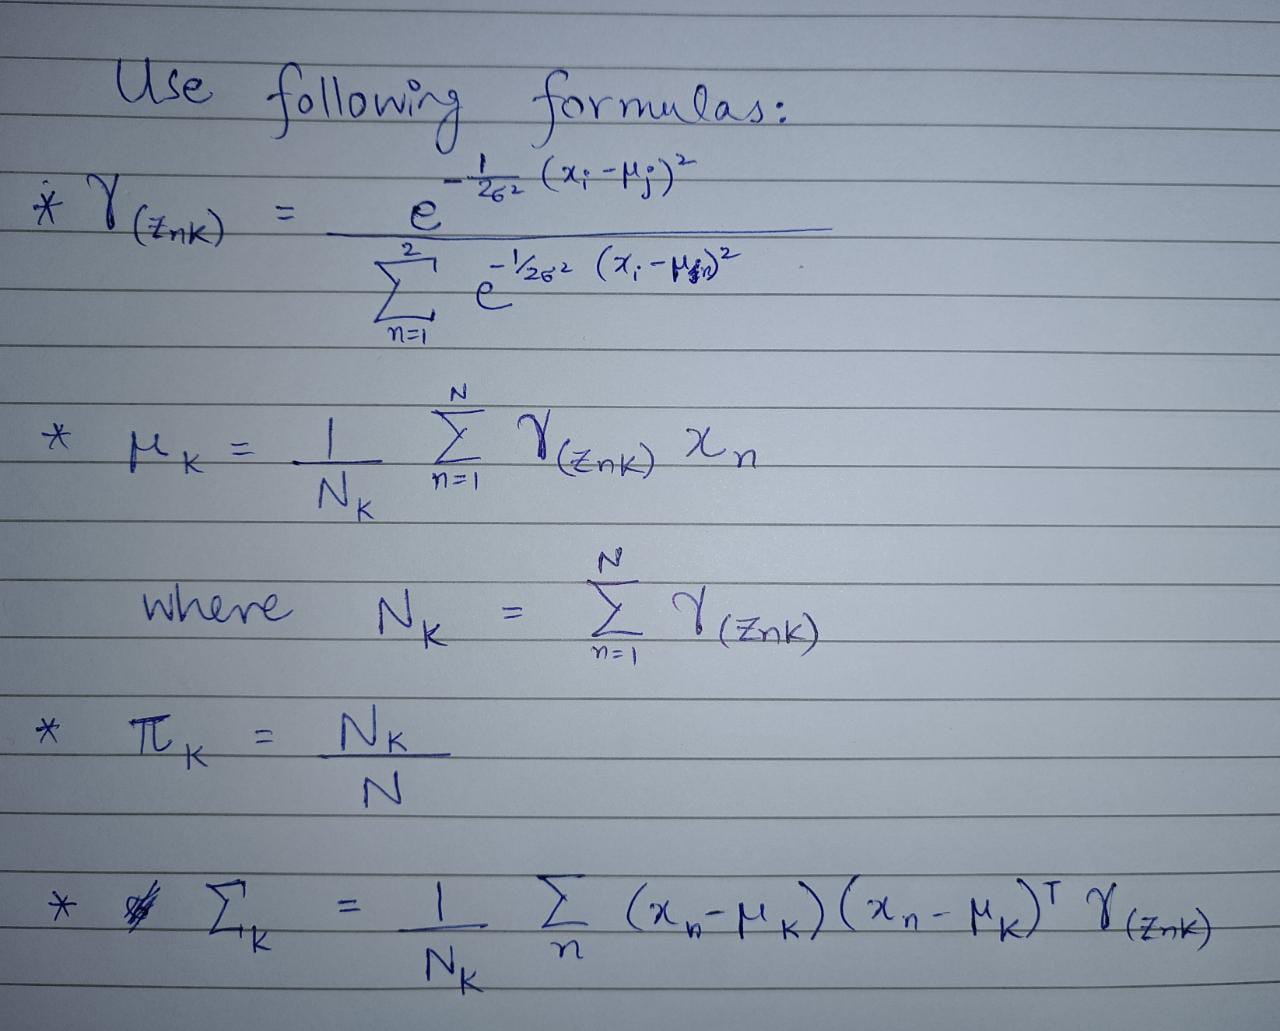 Use following formulas:
* γ(znk) = e^(-1/2σ² (xi - μj)²) / Σ_{n=1}^{2} e^(-1/2σ² (xi - μn)²)
* μK = 1/NK Σ_{n=1}^{N} γ(znk) xn
where NK = Σ_{n=1}^{N} γ(znk)
* πK = NK/N
* ΣK = 1/NK Σ_n (xn - μK)(xn - μK)^T γ(znk)